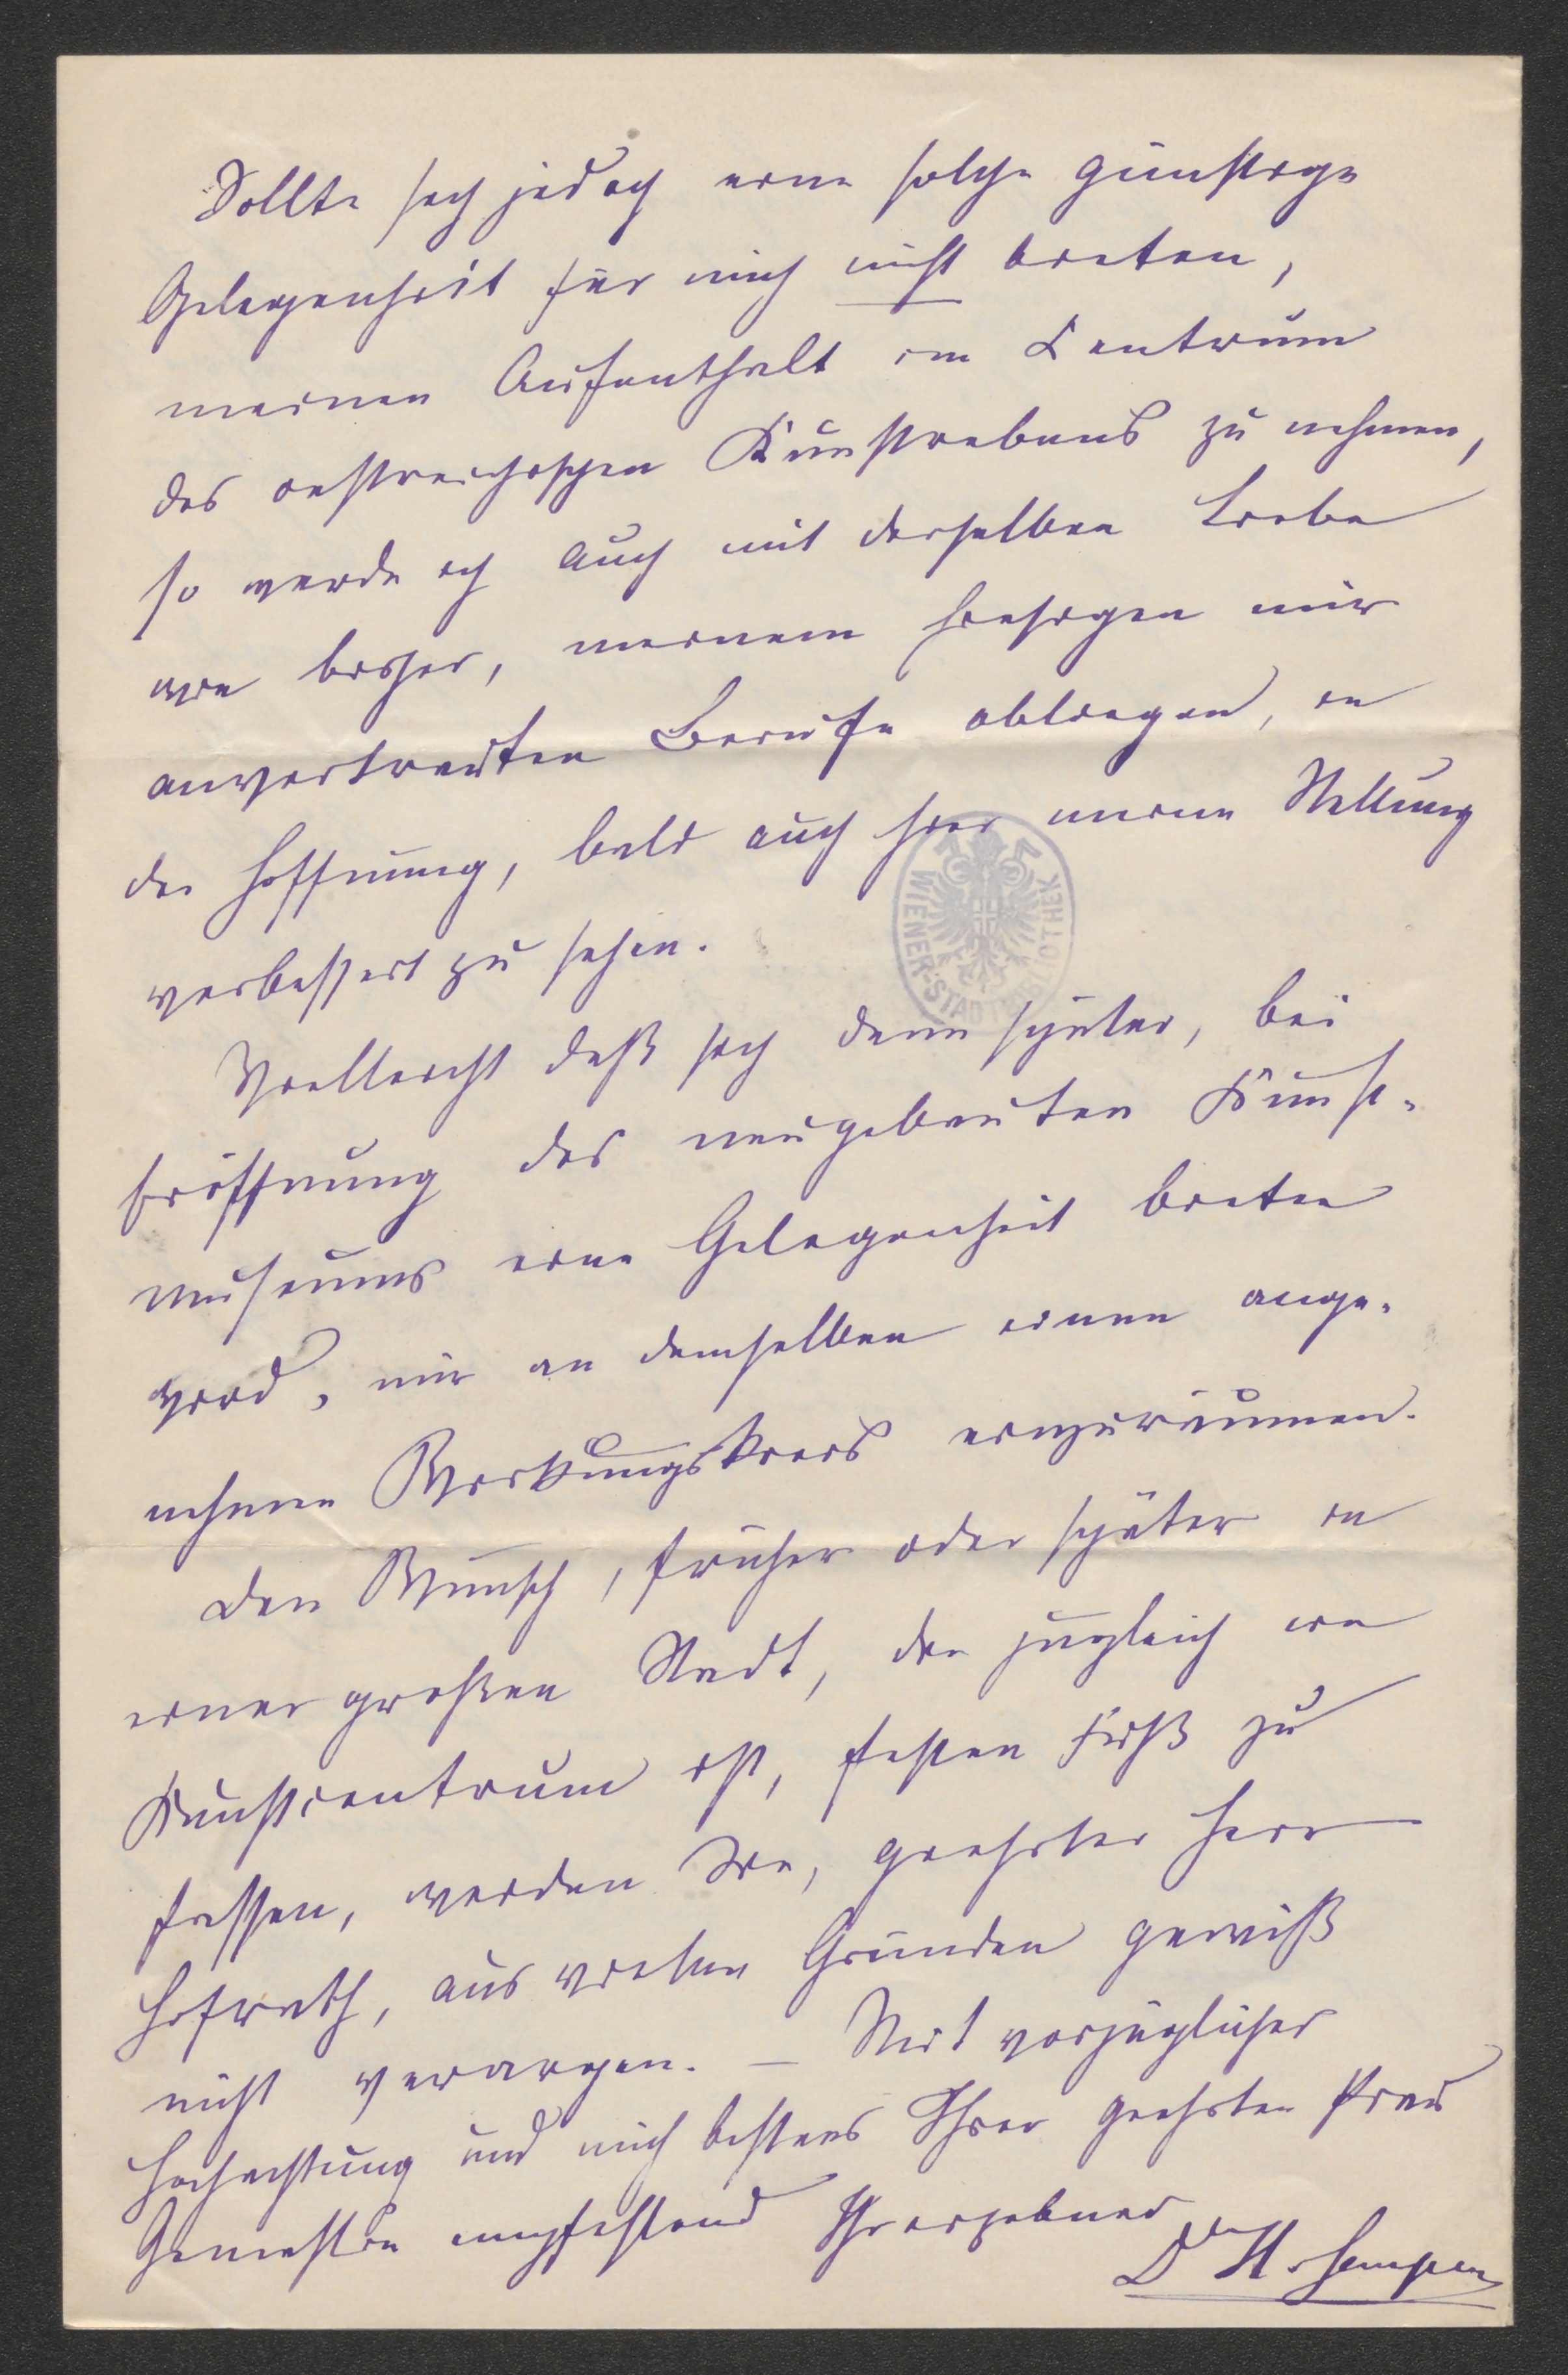 Sollte sich jedoch eine solche günstige
Gelegenheit für mich nicht bieten,
meinen Aufenthalt im Centrum
des oestreichischen Kunstlebens zu nehmen,
so werde ich auch mit derselben Liebe
wie bisher, meinem hiesigen mir
anvertrauten Berufe obliegen, in
der Hoffnung, bald auch hier meine Stellung
verbessert zu sehen.
Vielleicht daß sich dann später, bei
Eröffnung des neugebauten Kunst-
museums eine Gelegenheit bieten
wird, mir an demselben einen ange-
nehmen Wirkungskreis einzuräumen.
Den Wunsch, früher oder später in
einer großen Stadt, die zugleich ein
Kunstcentrum ist, festen Fuß zu
fassen, werden Sie, geehrter Herr
Hofrath, aus vielen Gründen gewiß
nicht verargen. – Mit vorzüglicher
Hochachtung und mich bestens Ihrer geehrten Frau
Gemahlin empfehlend Ihr ergebener
Dr H. Semper
WIENER-STADTBIBLIOTHEK